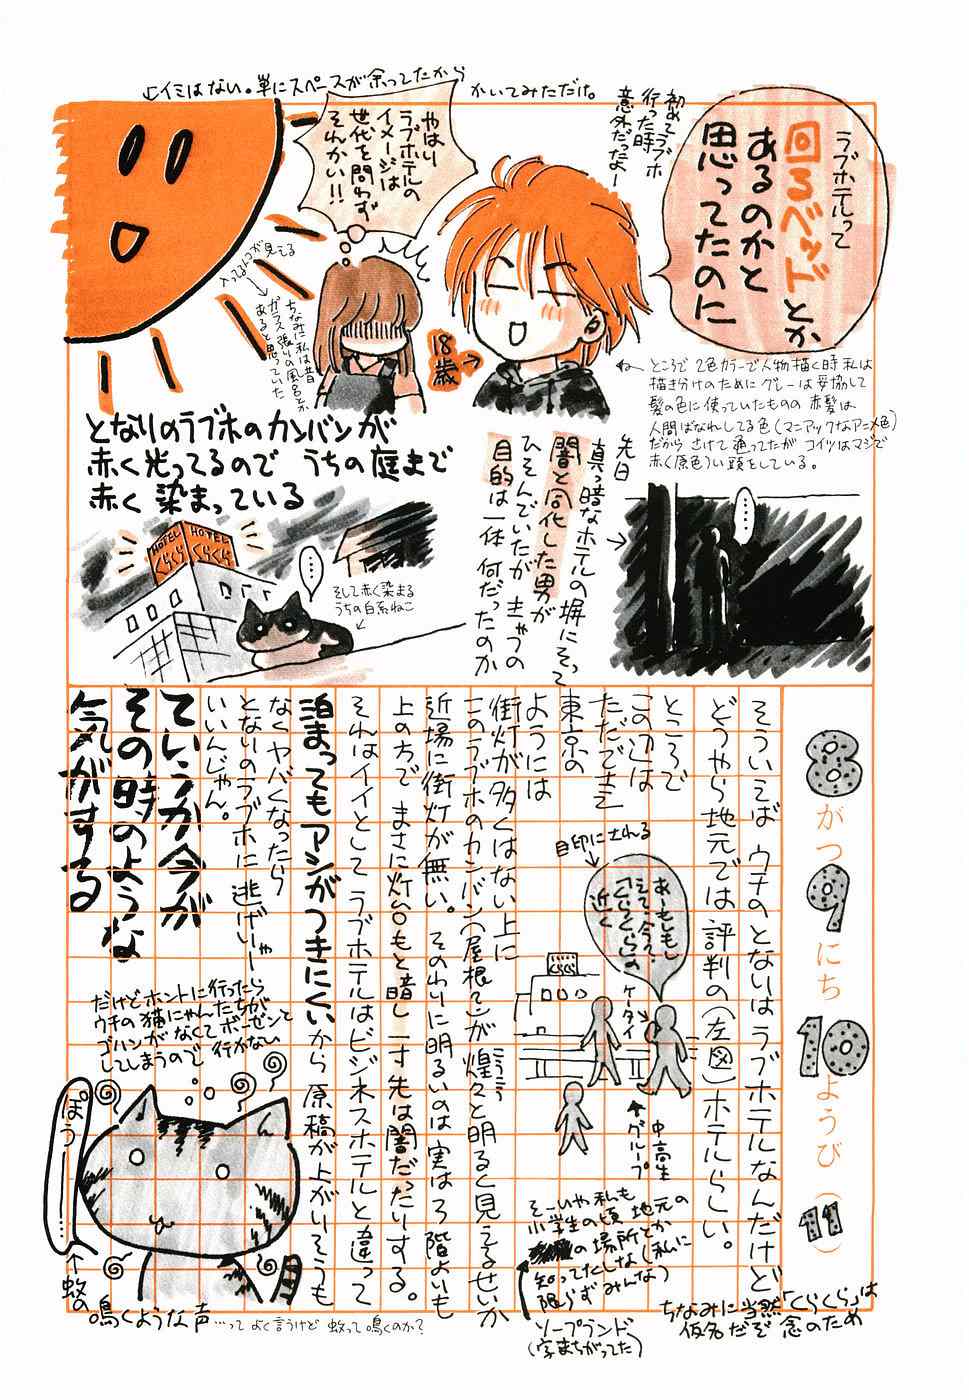 ←イミはない。単にスペースが余ってたから
かいてみただけ。
ラブホテルって
回るベッドとか
あるのかと
思ってたのに
初めてラブホ
行った時
意外だったよー
やはり
ラブホテルの
イメージは
世代を問わず
それかい!!
18歳→
入ってるトコが見える
ちなみに私は昔
ガラス張りの風呂とか
あると思っていた
ところで 2色カラーで人物描く時 私は
描き分けのために グレーは妥協して
髪の色に使っていたものの 赤髪は
人間ばなれしてる色(マニアックなアニメ色)
だから さけて通ってたが コイツはマジで
赤く(原色)い頭をしている。
となりのラブホのカンバンが
赤く光ってるので うちの庭まで
赤く染まっている
HOTEL くらくら
HOTEL くらくら
……
そして赤く染まる
うちの白系ねこ
先日
真っ暗なホテルの塀にそって
闇と同化した男が
ひそんでいたが きゃつの
目的は一体何だったのか
……
8がつ9にち10ようび(11)
そういえば ウチのとなりはラブホテルなんだけど
どうやら地元では評判の(左図)ホテルらしい。
ところで
この辺は
ただでさえ
東京の
ようには
街灯が多くはない上に
このラブホのカンバン(屋根上)が煌々と明るく見えるせいか
こうこう
近場に街灯が無い。そのわりに明るいのは実は3階よりも
上の方で まさに灯台もと暗し 一寸先は闇だったりする。
それはイイとして ラブホテルはビジネスホテルと違って
泊まってもアシがつきにくいから 原稿が上がりそうも
なくヤバくなったら
となりのラブホに逃げりゃー
いいんじゃん。
ていうか今が
その時のような
気がする
目印にされる
あーもしもし
えて、今ぇ、
「くらくら」の
近く
くらくら
ケータイ
中高生
グループ
そーいや私も
小学生の頃 地元の
の場所とか
知ってたしな(私に
限らずみんな)
ソープランド
(字まちがってた)
ちなみに当然「くらくら」は
仮名だぞ 念のため
だけどホントに行ったら
ウチの猫にゃんたちが
ゴハンがなくてボーゼンて
してしまうので 行かない
ぽぅーー……
↑蚊の
鳴くような声
…って よく言うけど 蚊って鳴くのか?